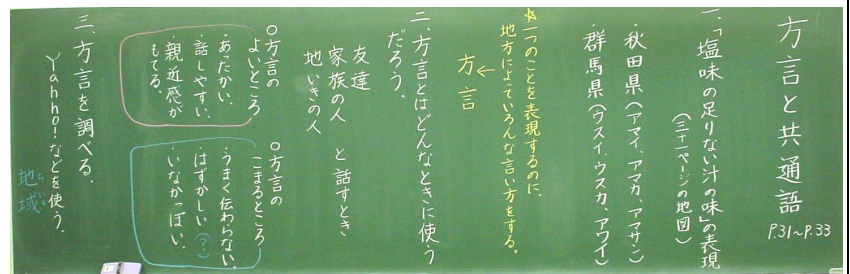 方言と共通語
P.31~P.33
一、「塩味の足りない汁の味」の表現
(三十一ページの地図)
・秋田県(アマイ、アマカ、アマサン)
・群馬県(ウスイ、ウスカ、アワイ)
☆一つのことを表現するのに、
地方によっていろんな言い方をする。
↓
方言
二、方言とはどんなときに使う
だろう。
友達
家族の人
地いきの人
と話すとき
○方言の
よいところ
・あったかい、
・話しやすい、
・親近感が
もてる、
○方言の
こまるところ
・うまく伝わらない、
・はずかしい(?)
・いなかっぽい、
三、方言を調べる、
Yahho!などを使う、
地域